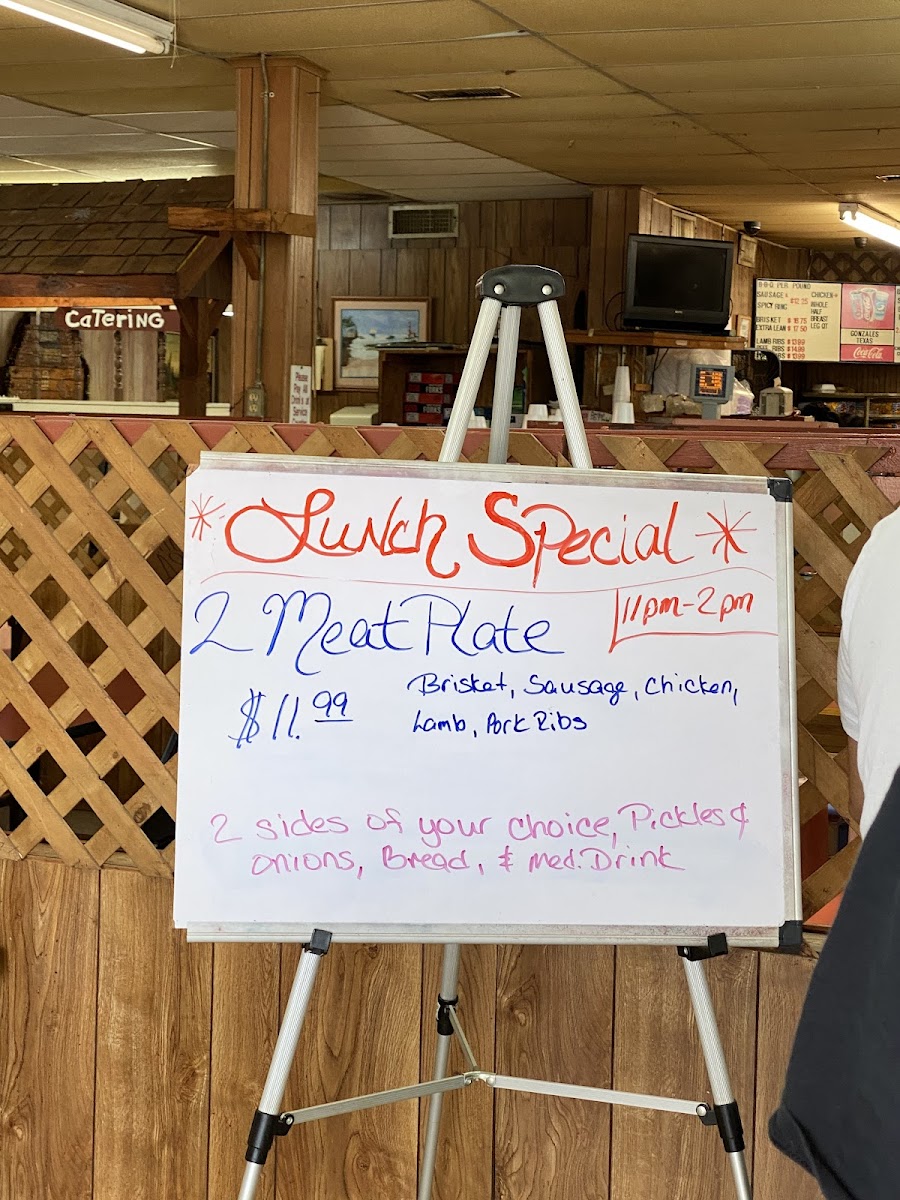 CATERING
Please
Pay All
at
Service
FORKS
B-B-Q PER POUND
SAUSAGE
$12.25
SPICY RING
BRISKET $ 16.75
EXTRA LEAN $ 17.50
LAMB RIBS $ 13.99
CHICKEN
WHOLE
HALF
BREAST
LEG QT
GONZALES
TEXAS
Coca-Cola
* Lunch Special *
11pm-2pm
2 Meat Plate
$11.99
Brisket, Sausage, Chicken,
Lamb, Pork Ribs
2 sides of your choice, Pickles &
onions, Bread, & Med. Drink